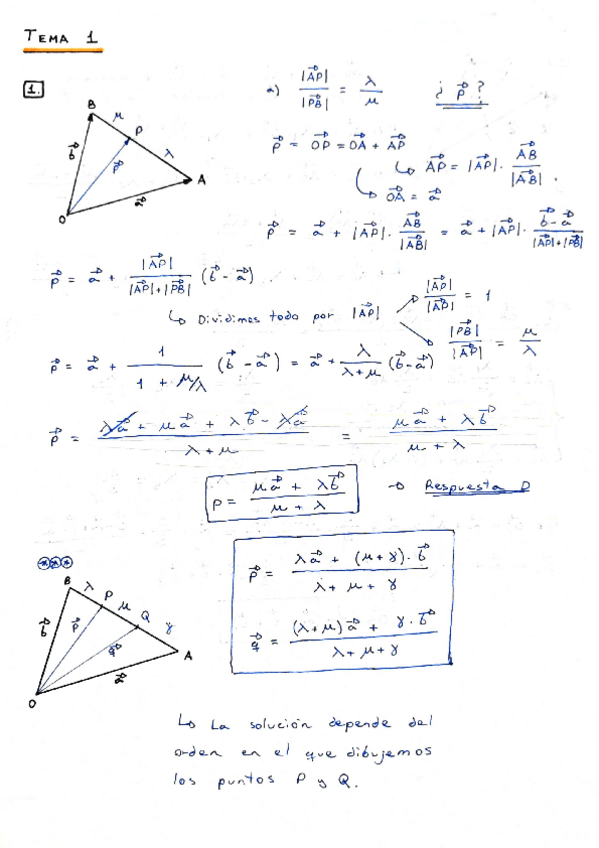 TEMA 1
1.
a) |AP⃗| / |PB⃗| = λ / μ   ¿ p⃗ ?
B μ P λ A
b⃗ p⃗ a⃗ O
p⃗ = OP⃗ = OA⃗ + AP⃗
↳ AP⃗ = |AP⃗| · AB⃗ / |AB⃗| .
↳ OA⃗ = a⃗
p⃗ = a⃗ + |AP⃗| · AB⃗ / |AB⃗| = a⃗ + |AP⃗| · (b⃗ - a⃗) / (|AP⃗| + |PB⃗|)
p⃗ = a⃗ + |AP⃗| / (|AP⃗| + |PB⃗|) (b⃗ - a⃗)
↳ Dividimos todo por |AP⃗|   |AP⃗| / |AP⃗| = 1
|PB⃗| / |AP⃗| = μ / λ
p⃗ = a⃗ + 1 / (1 + μ/λ) (b⃗ - a⃗) = a⃗ + λ / (λ + μ) (b⃗ - a⃗)
p⃗ = (λa⃗ + μa⃗ + λb⃗ - λa⃗) / (λ + μ) = (μa⃗ + λb⃗) / (μ + λ)
p = (μa⃗ + λb⃗) / (μ + λ) → Respuesta D
***
B λ P μ Q γ A
b⃗ p⃗ q⃗ a⃗ O
p⃗ = (λa⃗ + (μ + γ) · b⃗) / (λ + μ + γ)
q⃗ = ((λ + μ) a⃗ + γ · b⃗) / (λ + μ + γ)
↳ La solución depende del
orden en el que dibujemos
los puntos P y Q.